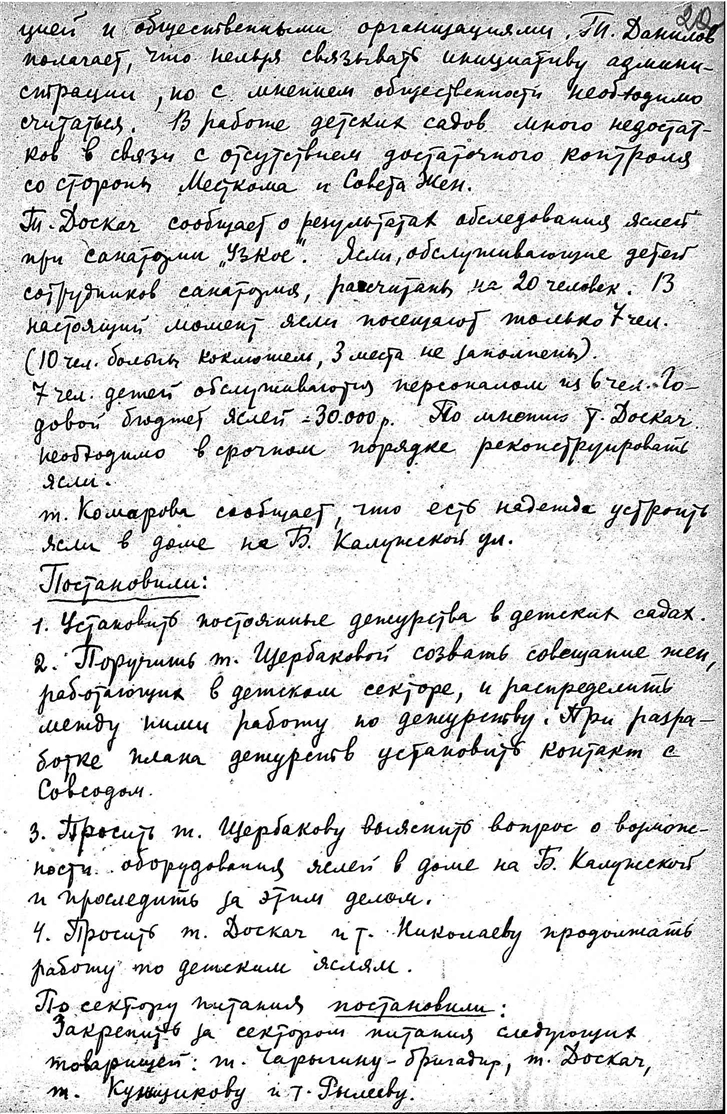 20
цией и общественными организациями. Т. Данилов
полагает, что нельзя связывать инициативу админи-
страции, но с мнением общественности необходимо
считаться. В работе детских садов много недостат-
ков в связи с отсутствием достаточного контроля
со стороны Месткома и Совета Жен.
Т. Доскач сообщает о результатах обследования яслей
при санатории „Узкое". Ясли, обслуживающие детей
сотрудников санатория, рассчитаны на 20 человек. В
настоящий момент ясли посещают только 7 чел.
(10 чел. больны коклюшем, 3 места не заполнены).
7 чел. детей обслуживаются персоналом из 6 чел. Го-
довой бюджет яслей = 30.000 р. По мнению т. Доскач
необходимо в срочном порядке реконструировать
ясли.
т. Комарова сообщает, что есть надежда устроить
ясли в доме на Б. Калужской ул.
Постановили:
1. Установить постоянные дежурства в детских садах.
2. Поручить т. Щербаковой созвать совещание жен,
работающих в детском секторе, и распределить
между ними работу по дежурству. При разра-
ботке плана дежурств установить контакт с
Совсодом.
3. Просить т. Щербакову выяснить вопрос о возмож-
ности оборудования яслей в доме на Б. Калужской
и проследить за этим делом.
4. Просить т. Доскач и т. Николаеву продолжать
работу по детским яслям.
По сектору питания постановили:
Закрепить за сектором питания следующих
товарищей: т. Чарыгину - бригадир, т. Доскач,
т. Кунщикову и т. Рылееву.